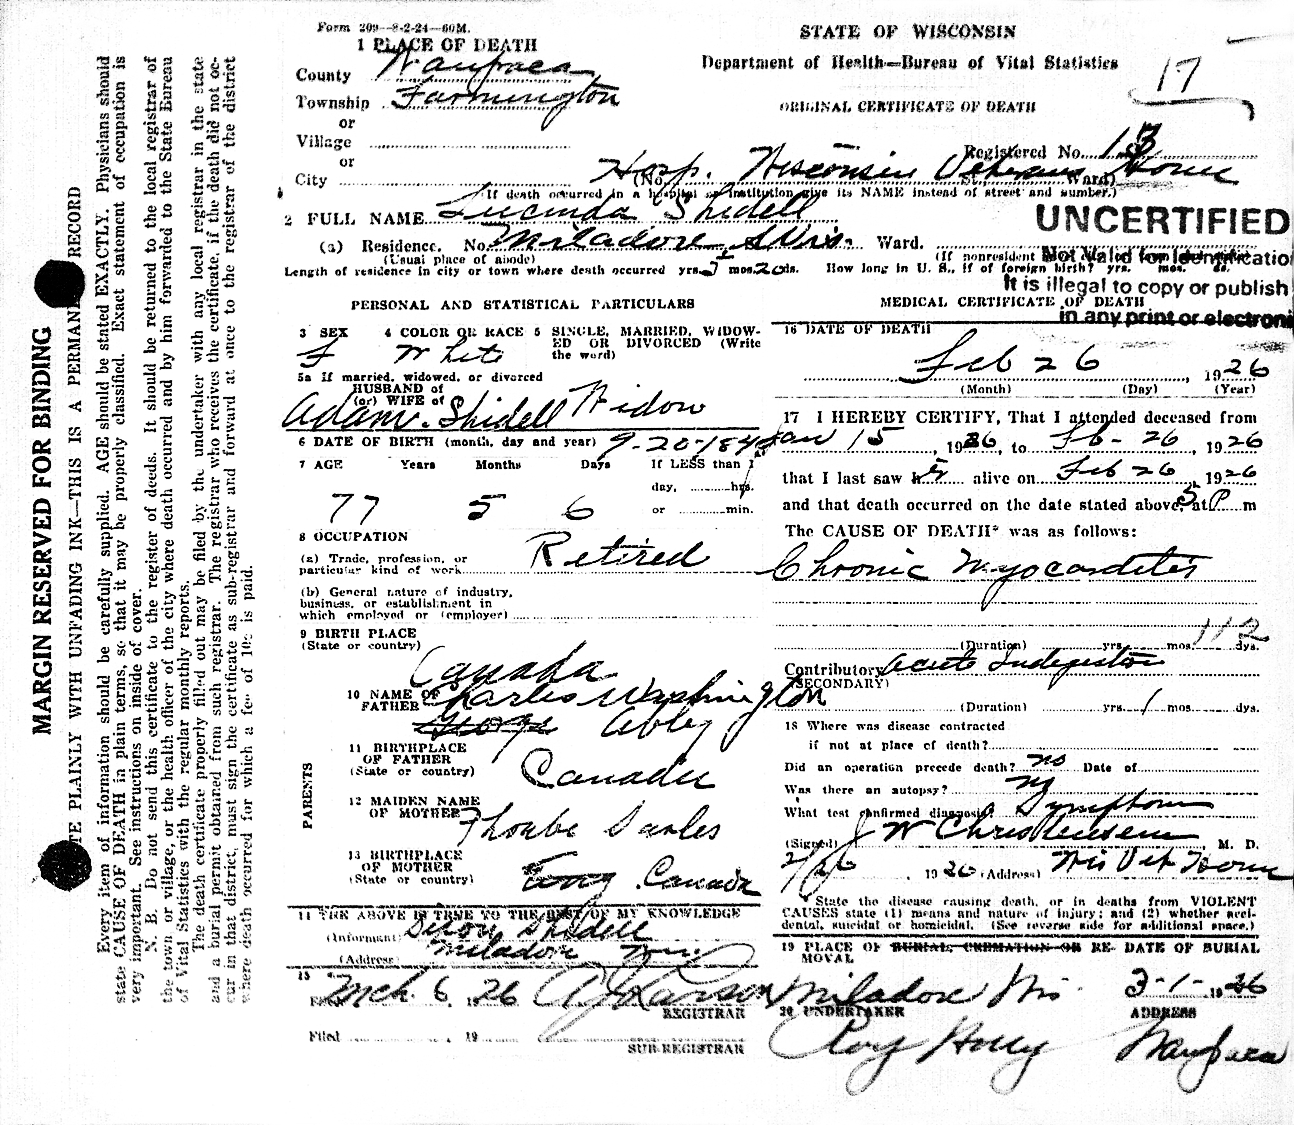 Form 209—8-2-24—60M.
1 PLACE OF DEATH
County Waupaca
Township Farmington
or
Village
or
City
STATE OF WISCONSIN
Department of Health—Bureau of Vital Statistics
ORIGINAL CERTIFICATE OF DEATH
17
Registered No. 13
(No. Hosp. Wisconsin Veterans Home St., Ward)
(If death occurred in a hospital or institution give its NAME instead of street and number.)
2 FULL NAME Lucinda Shidell
(a) Residence. No. Miladore, Wis. Ward.
(Usual place of abode)
(If nonresident
Length of residence in city or town where death occurred yrs. mos. 20 ds. How long in U. S., if of foreign birth? yrs. mos. ds.
UNCERTIFIED
Not Valid for Identification
It is illegal to copy or publish
in any print or electroni
PERSONAL AND STATISTICAL PARTICULARS
3 SEX F
4 COLOR OR RACE White
5 SINGLE, MARRIED, WIDOWED OR DIVORCED (Write the word) Widow
5a If married, widowed, or divorced
HUSBAND of
(or) WIFE of Adam Shidell
6 DATE OF BIRTH (month, day and year) 9-20-184
7 AGE Years Months Days If LESS than 1
day, hrs.
or min.
77 5 6
8 OCCUPATION
(a) Trade, profession, or
particular kind of work Retired
(b) General nature of industry,
business, or establishment in
which employed or (employer)
9 BIRTH PLACE
(State or country) Canada
PARENTS
10 NAME OF
FATHER Charles Washington
George Abley
11 BIRTHPLACE
OF FATHER
(State or country) Canada
12 MAIDEN NAME
OF MOTHER Phoebe Sarles
13 BIRTHPLACE
OF MOTHER
(State or country) Eng Canada
14 THE ABOVE IS TRUE TO THE BEST OF MY KNOWLEDGE
(Informant) Shidell
(Address) Miladore Wis
15
Filed Mch 6, 1926 Larson
REGISTRAR
Filed 19
SUB-REGISTRAR
MEDICAL CERTIFICATE OF DEATH
16 DATE OF DEATH
Feb 26, 1926
(Month) (Day) (Year)
17 I HEREBY CERTIFY, That I attended deceased from
Jan 15, 1926, to Feb-26, 1926
that I last saw her alive on Feb 26, 1926
and that death occurred on the date stated above, at 5 P m
The CAUSE OF DEATH* was as follows:
Chronic Myocarditis
112
(Duration) yrs. mos. dys.
Contributory Acute Indigestion
(SECONDARY)
(Duration) yrs. 1 mos. dys.
18 Where was disease contracted
if not at place of death?
Did an operation precede death? no Date of
Was there an autopsy? no
What test confirmed diagnosis? Symptoms
(Signed) J W Christensen, M. D.
2/26, 1926 (Address) Wis Vet Home
*State the disease causing death, or in deaths from VIOLENT
CAUSES state (1) means and nature of injury; and (2) whether acci-
dental, suicidal or homicidal. (See reverse side for additional space.)
19 PLACE OF BURIAL, CREMATION OR RE- DATE OF BURIAL
MOVAL
Miladore Wis. 3-1-1926
20 UNDERTAKER ADDRESS
Roy Holly Waupaca
MARGIN RESERVED FOR BINDING
TE PLAINLY WITH UNFADING INK—THIS IS A PERMANE RECORD
Every item of information should be carefully supplied. AGE should be stated EXACTLY. Physicians should
state CAUSE OF DEATH in plain terms, so that it may be properly classified. Exact statement of occupation is
very important. See instructions on inside of cover.
N. B. Do not send this certificate to the register of deeds. It should be returned to the local registrar of
the town or village, or the health officer of the city where death occurred and by him forwarded to the State Bureau
of Vital Statistics with the regular monthly reports.
The death certificate properly filled out may be filed by the undertaker with any local registrar in the state
and a burial permit obtained from such registrar. The registrar who receives the certificate, if the death did not oc-
cur in that district, must sign the certificate as sub-registrar and forward at once to the registrar of the district
where death occurred for which a fee of 10c is paid.